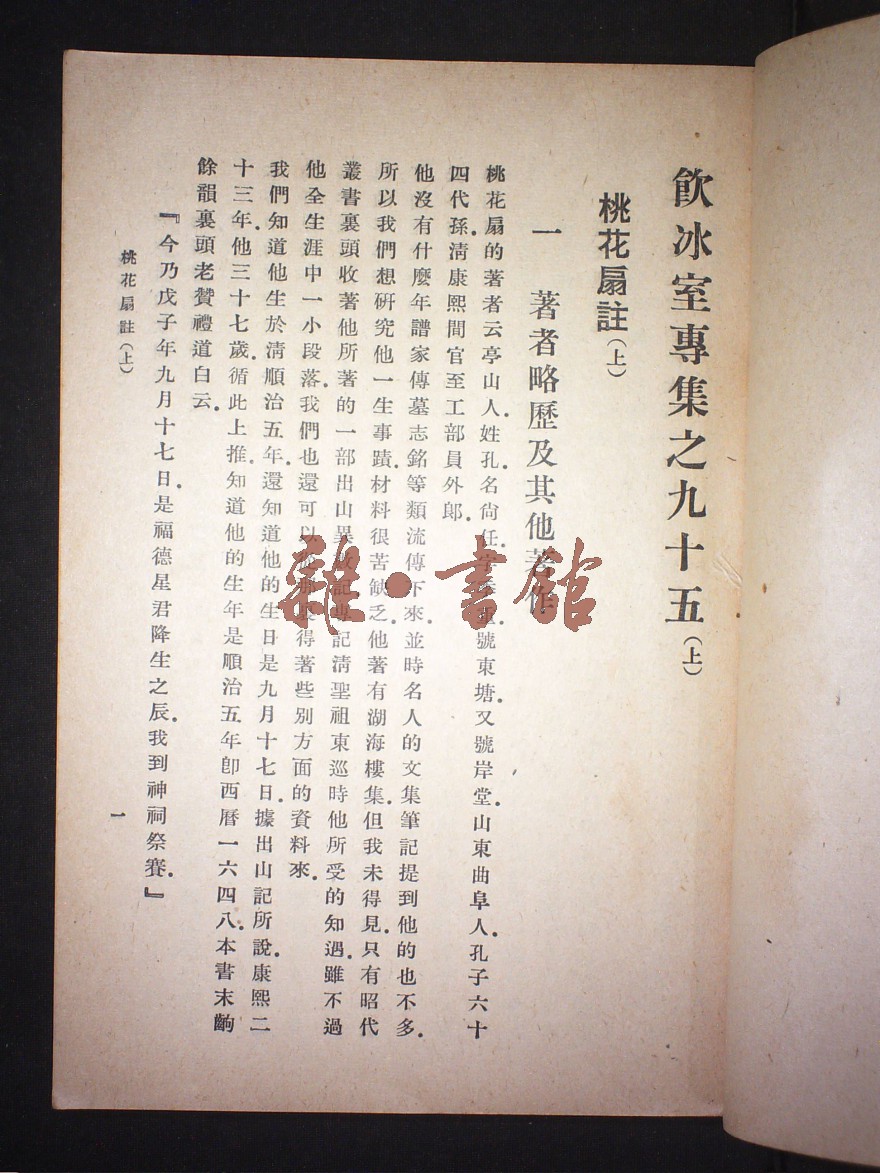 飲冰室專集之九十五(上)
桃花扇註(上)
一 著者略歷及其他著作
桃花扇的著者云亭山人.姓孔.名尙任.字季重.號東塘.又號岸堂.山東曲阜人.孔子六十
四代孫.淸康熙間官至工部員外郞.
他沒有什麼年譜家傳墓志銘等類流傳下來.並時名人的文集筆記提到他的也不多.
所以我們想硏究他一生事蹟.材料很苦缺乏.他著有湖海樓集.但我未得見.只有昭代
叢書裏頭收著他所著的一部出山異數記.專記淸聖祖東巡時他所受的知遇.雖不過
他全生涯中一小段落.我們也還可以從那裏得著些別方面的資料來.
我們知道他生於淸順治五年.還知道他的生日是九月十七日.據出山記所說.康熙二
十三年.他三十七歲.循此上推.知道他的生年是順治五年卽西曆一六四八.本書末齣
餘韻裏頭老贊禮道白云.
『今乃戊子年九月十七日.是福德星君降生之辰.我到神祠祭賽.』
桃花扇註(上)
一
雜·書館